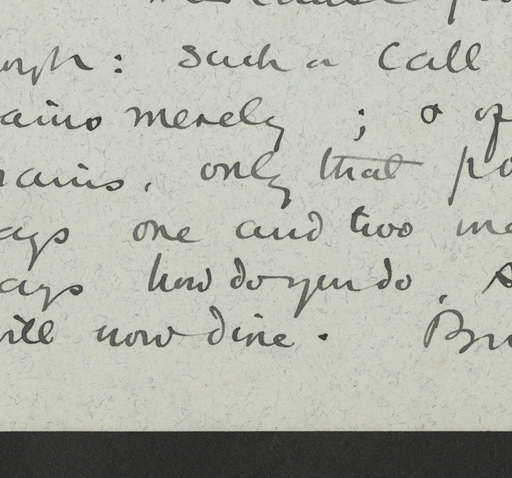 ough: Such a Call
ains merely; & of
rains, only that po
ays one and two ma
ays how do you do, S
will now dine. Bru